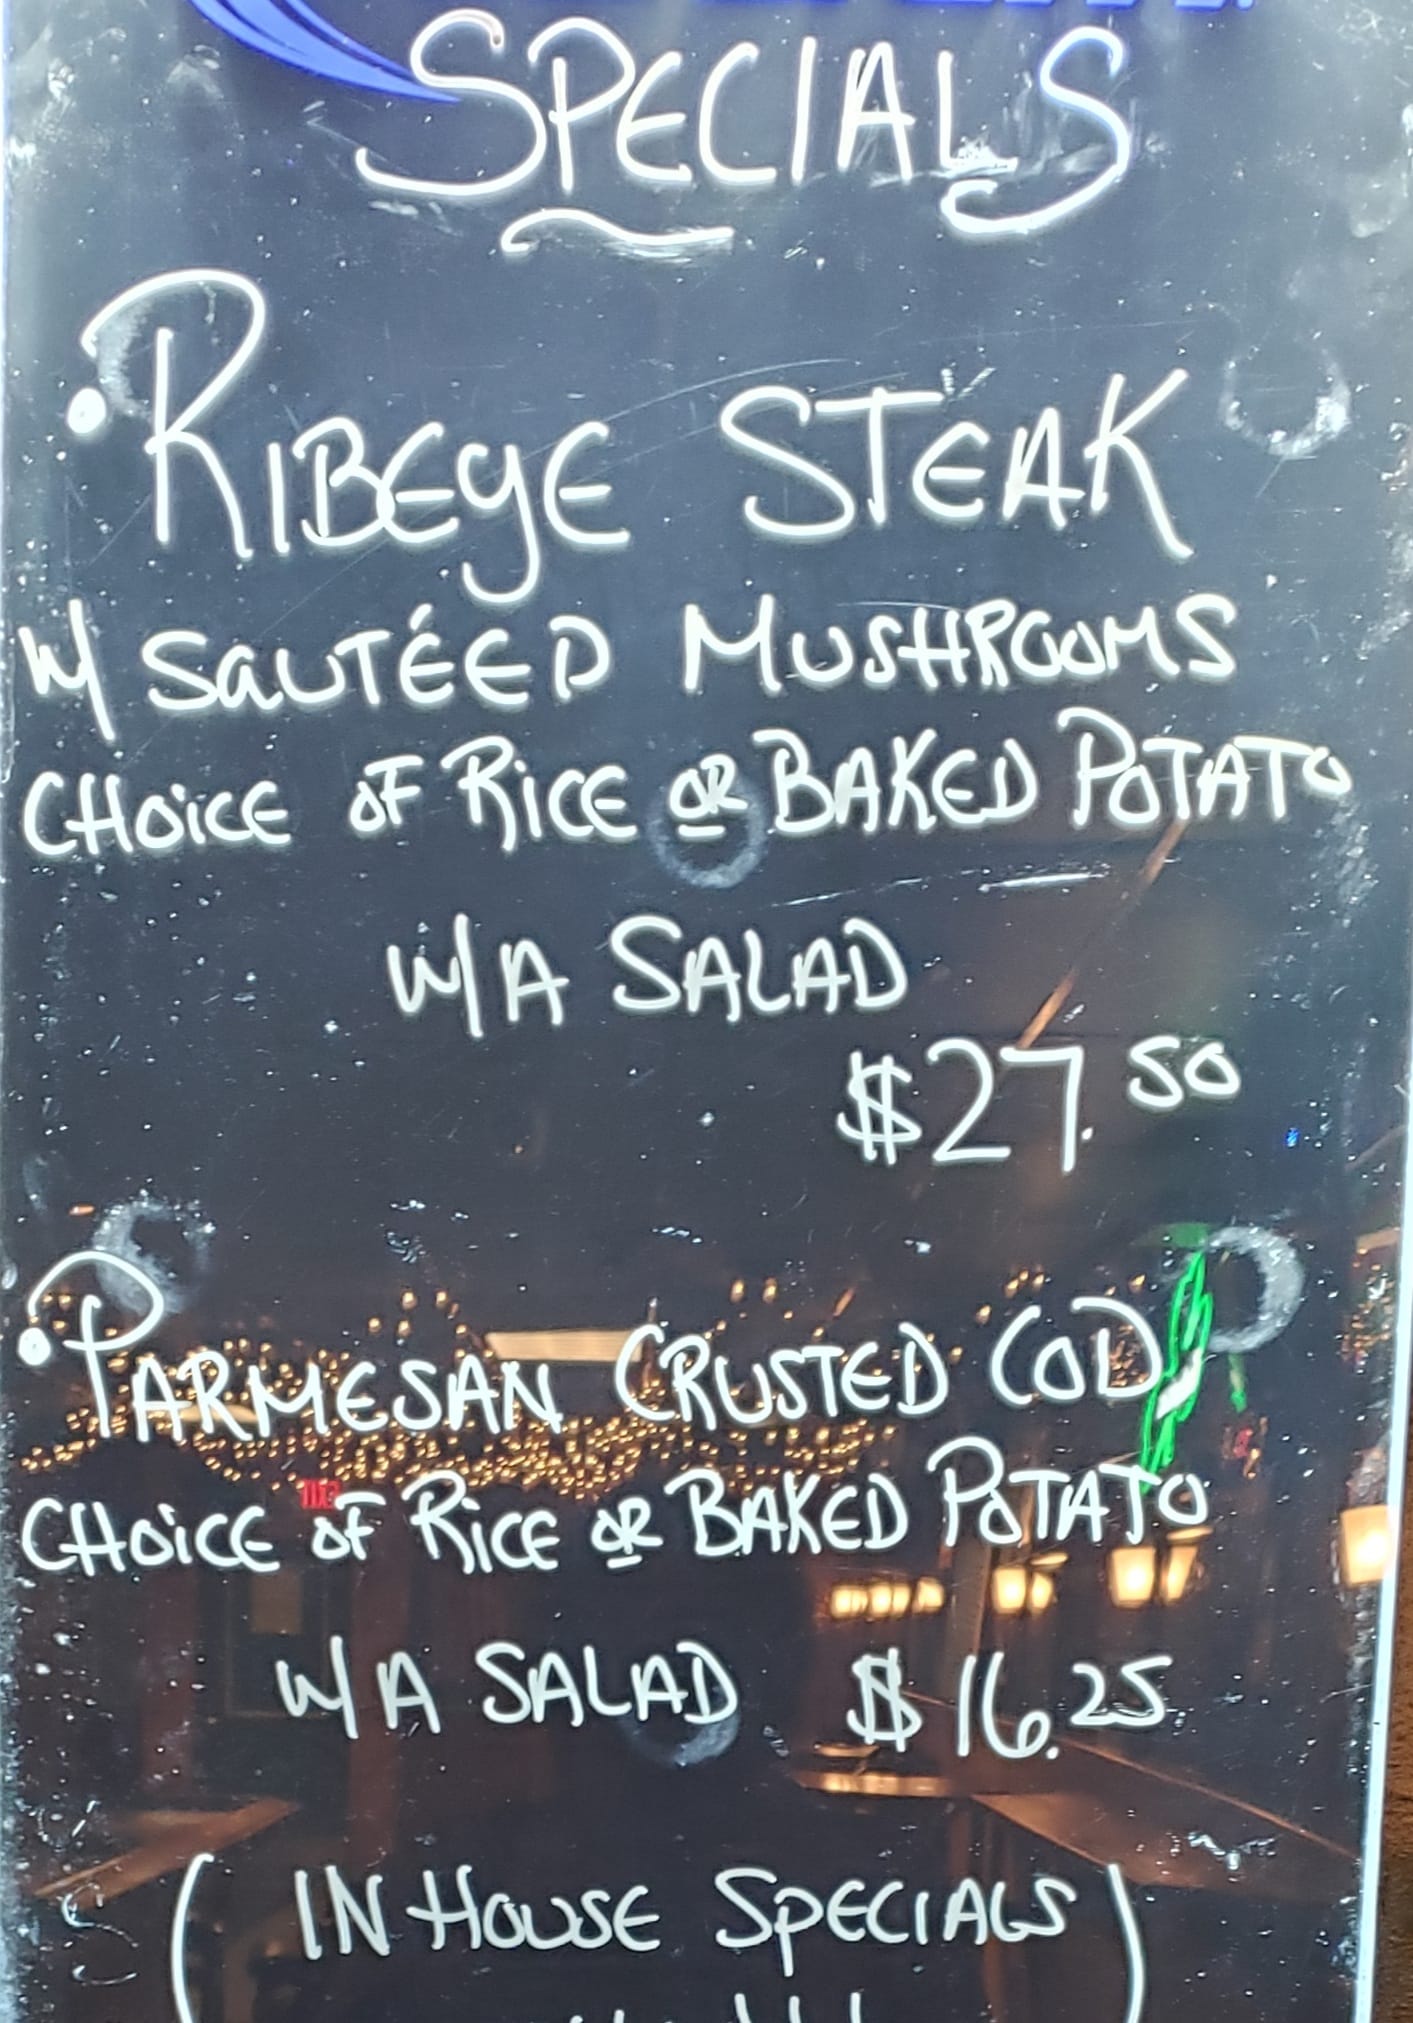 SPECIALS
• RIBEYE STEAK
W/ SAUTÉED MUSHROOMS
CHOICE OF RICE OR BAKED POTATO
W/A SALAD
$27.50
• PARMESAN CRUSTED COD
CHOICE OF RICE OR BAKED POTATO
W/A SALAD $16.25
(IN HOUSE SPECIALS)